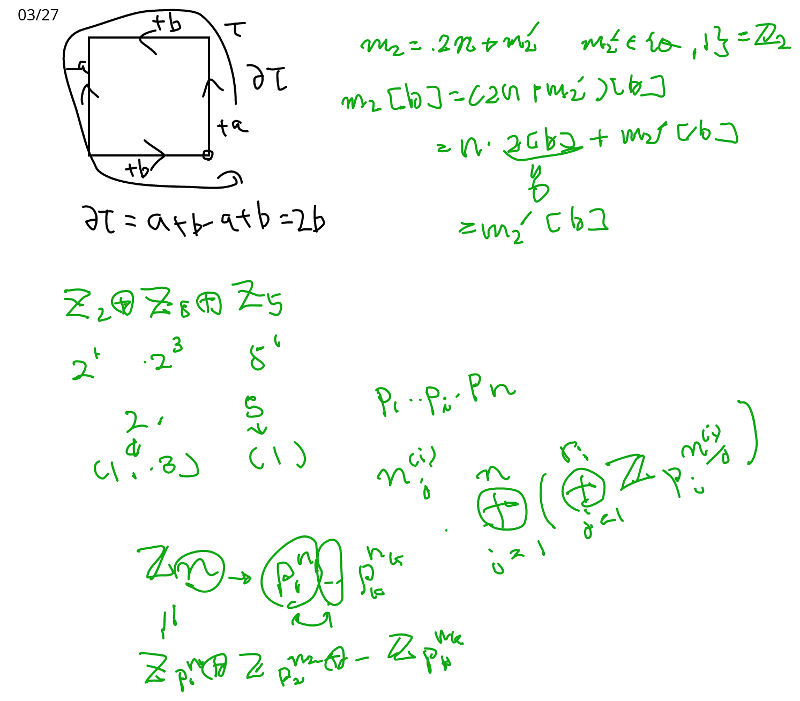 03/27
+b
τ
-a
∂τ
+a
+b
∂τ = a+b-a+b = 2b
m₂ = 2n + m₂' m₂' ∈ {0, 1} = ℤ₂
m₂[b] = (2n + m₂')[b]
= n · 2[b] + m₂'[b]
0
= m₂'[b]
ℤ₂ ⊕ ℤ₈ ⊕ ℤ₅
2¹ · 2³ 5¹
2, 5
↓ ↓
(1, 3) (1)
P₁ ·· Pᵢ · Pn
nⱼ⁽ⁱ⁾
⊕ᵢ₌₁ⁿ ( ⊕ⱼ₌₁^{rᵢ} ℤ pᵢ^{nⱼ⁽ⁱ⁾} )
ℤn → p₁ⁿ¹ -- pₖ^{nₖ}
||
ℤ p₁^{n₁} ⊕ ℤ p₂^{n₂} ⊕ - ℤ pₖ^{nₖ}